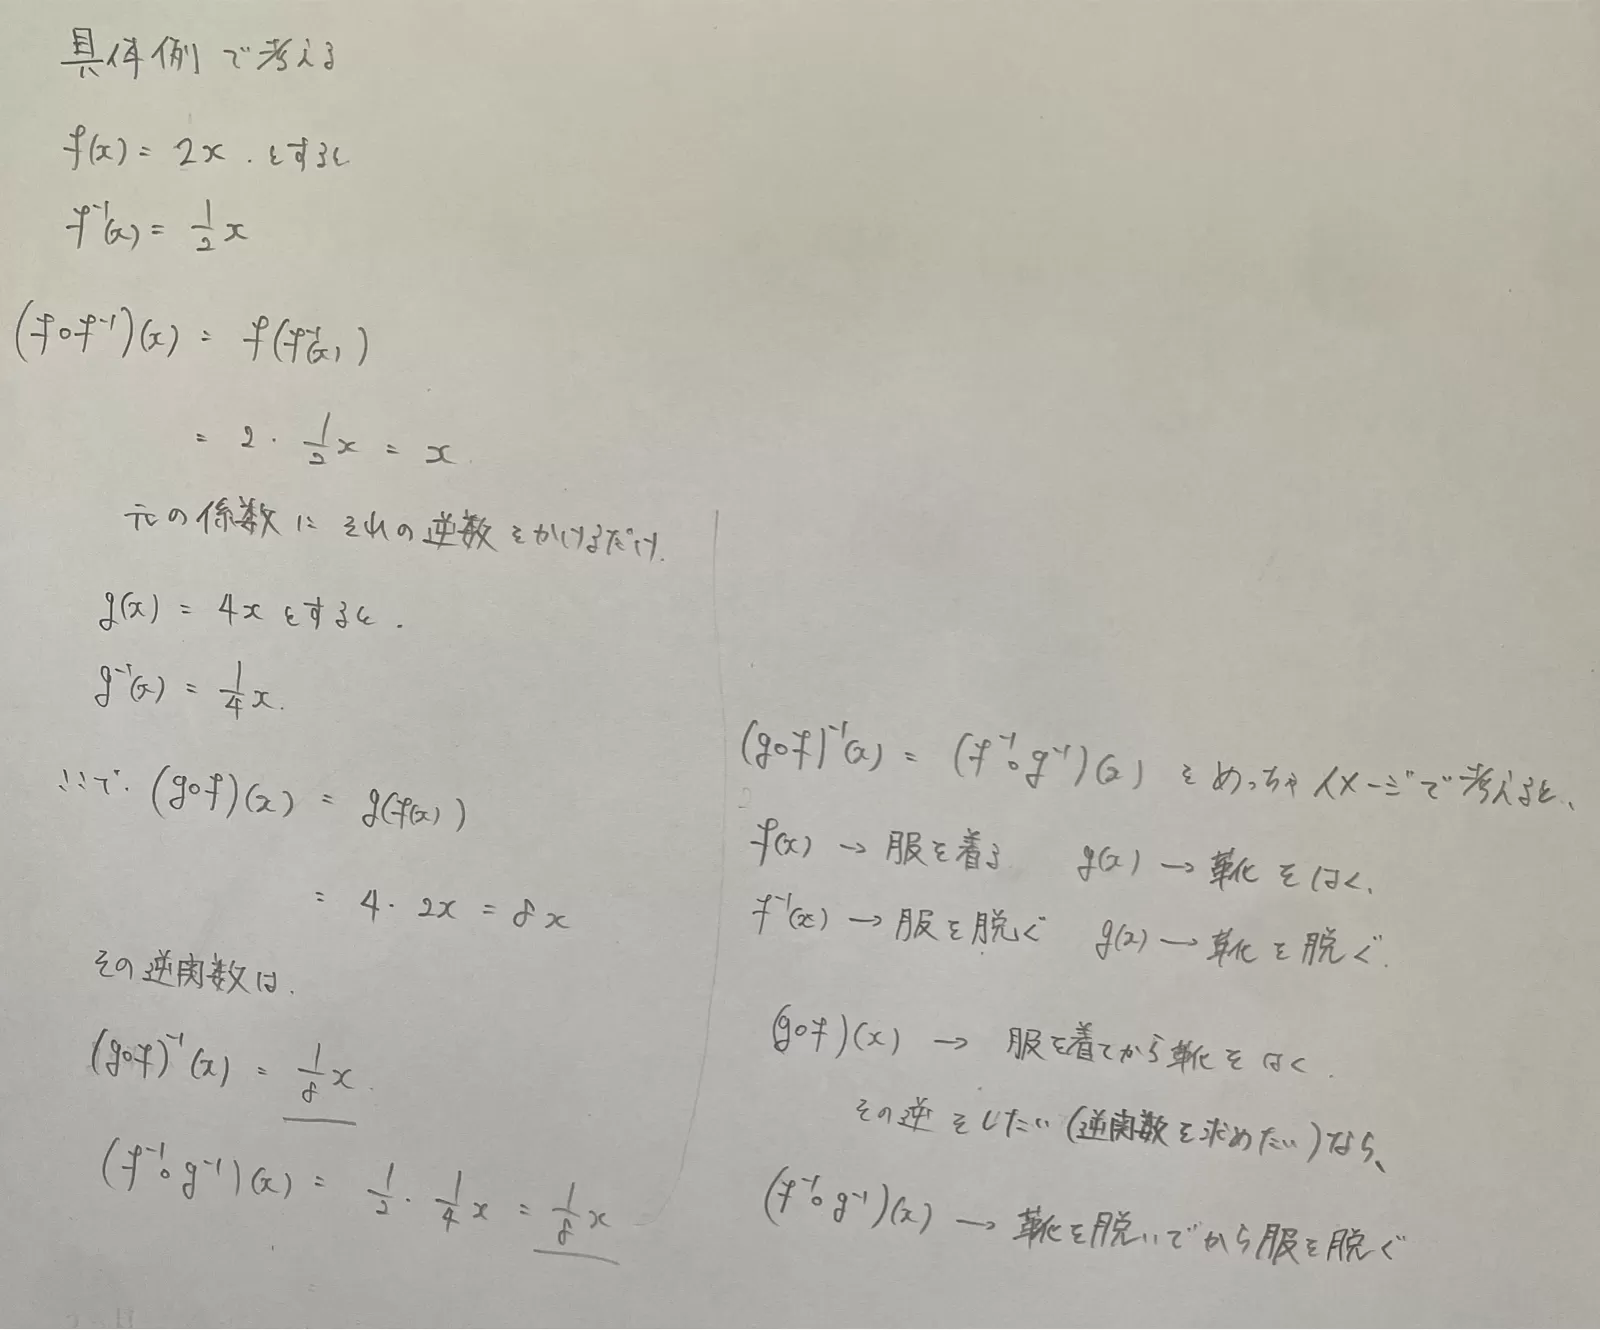 具体例で考える
f(x) = 2x . とすると
f⁻¹(x) = 1/2 x
(f∘f⁻¹)(x) = f(f⁻¹(x))
= 2 · 1/2 x = x.
元の係数にそれの逆数をかけるだけ.
g(x) = 4x とすると.
g⁻¹(x) = 1/4 x.
ここで. (g∘f)(x) = g(f(x))
= 4 · 2x = 8x
その逆関数は.
(g∘f)⁻¹(x) = 1/8 x.
(f⁻¹∘g⁻¹)(x) = 1/2 · 1/4 x = 1/8 x
(g∘f)⁻¹(x) = (f⁻¹∘g⁻¹)(x) をめっちゃイメージで考えると、
f(x) → 服を着る g(x) → 靴をはく、
f⁻¹(x) → 服を脱ぐ g(x) → 靴を脱ぐ.
(g∘f)(x) → 服を着てから靴をはく.
その逆をしたい(逆関数を求めたい)なら、
(f⁻¹∘g⁻¹)(x) → 靴を脱いでから服を脱ぐ